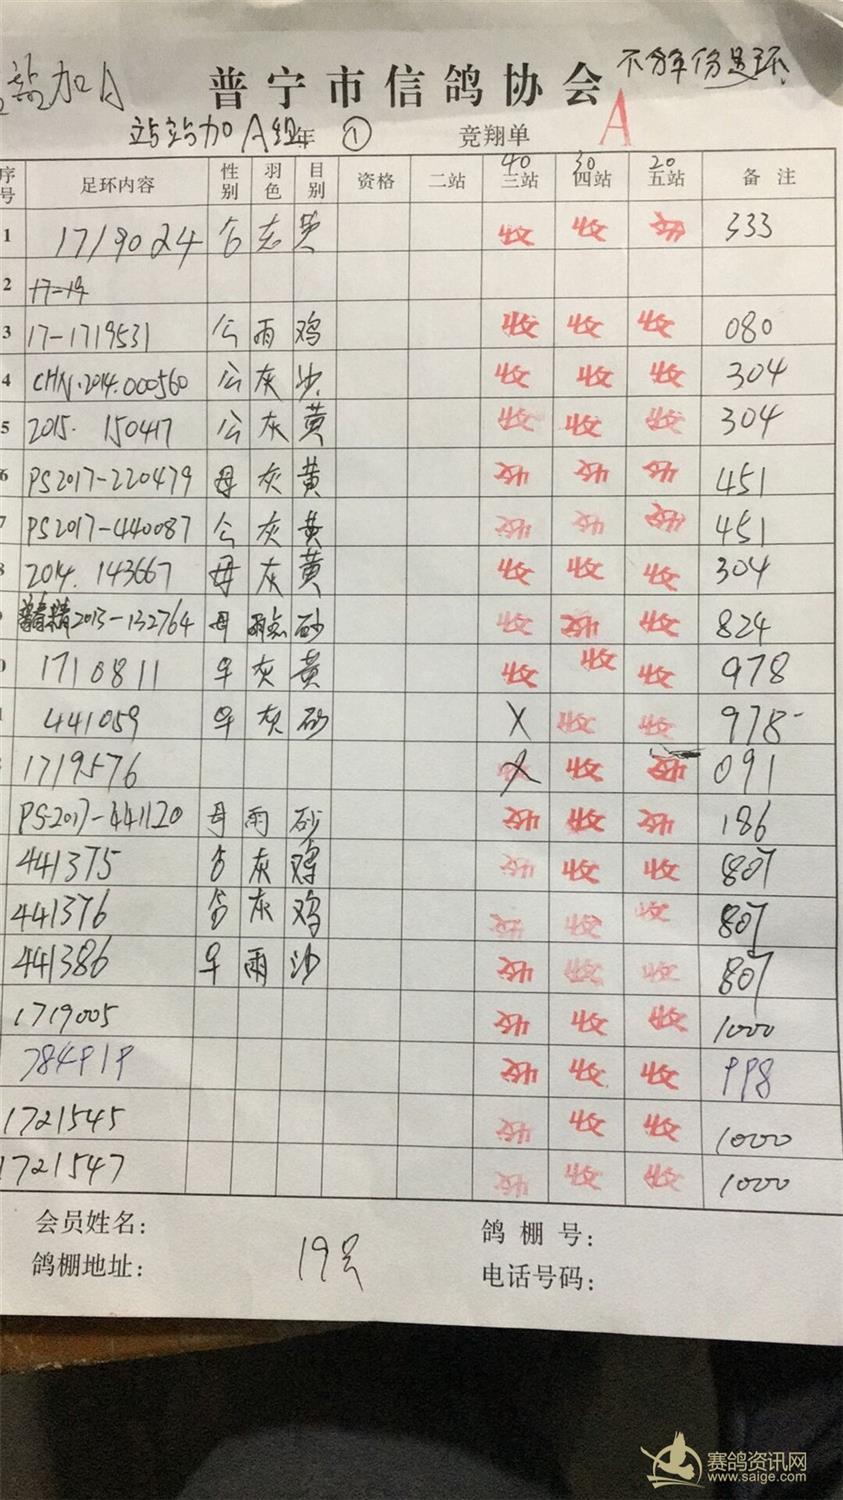 站加A 普宁市信鸽协会 不分年份足环
站站加A组年 ① 竞翔单 A
序号 足环内容 性别 羽色 目别 资格 二站 40三站 30四站 20五站 备注
1 1719024 合 志 黄 收 收 333
2 17-19
3 17-1719531 公 雨 鸡 收 收 收 080
4 CHN.2014.000560 公 灰 沙 收 收 收 304
5 2015. 150417 公 灰 黄 收 收 收 304
6 PS2017-220479 母 灰 黄 收 收 收 451
7 PS2017-440087 公 灰 黄 收 收 收 451
8 2014. 143667 母 灰 黄 收 收 收 304
2013-132764 母 雨点 砂 收 收 收 824
1710811 早 灰 黄 收 收 收 978
441059 早 灰 砂 X 收 收 978-
1719576 X 收 收 091
PS-2017-441120 母 雨 砂 收 收 收 186
441375 合 灰 鸡 收 收 收 807
441376 合 灰 鸡 收 收 收 807
441386 早 雨 沙 收 收 收 807
1719005 收 收 收 1000
784919 收 收 收 998
1721545 收 收 收 1000
1721547 收 收 收 1000
会员姓名: 鸽棚号:
鸽棚地址: 19号 电话号码:
赛鸽资讯网
www.saige.com